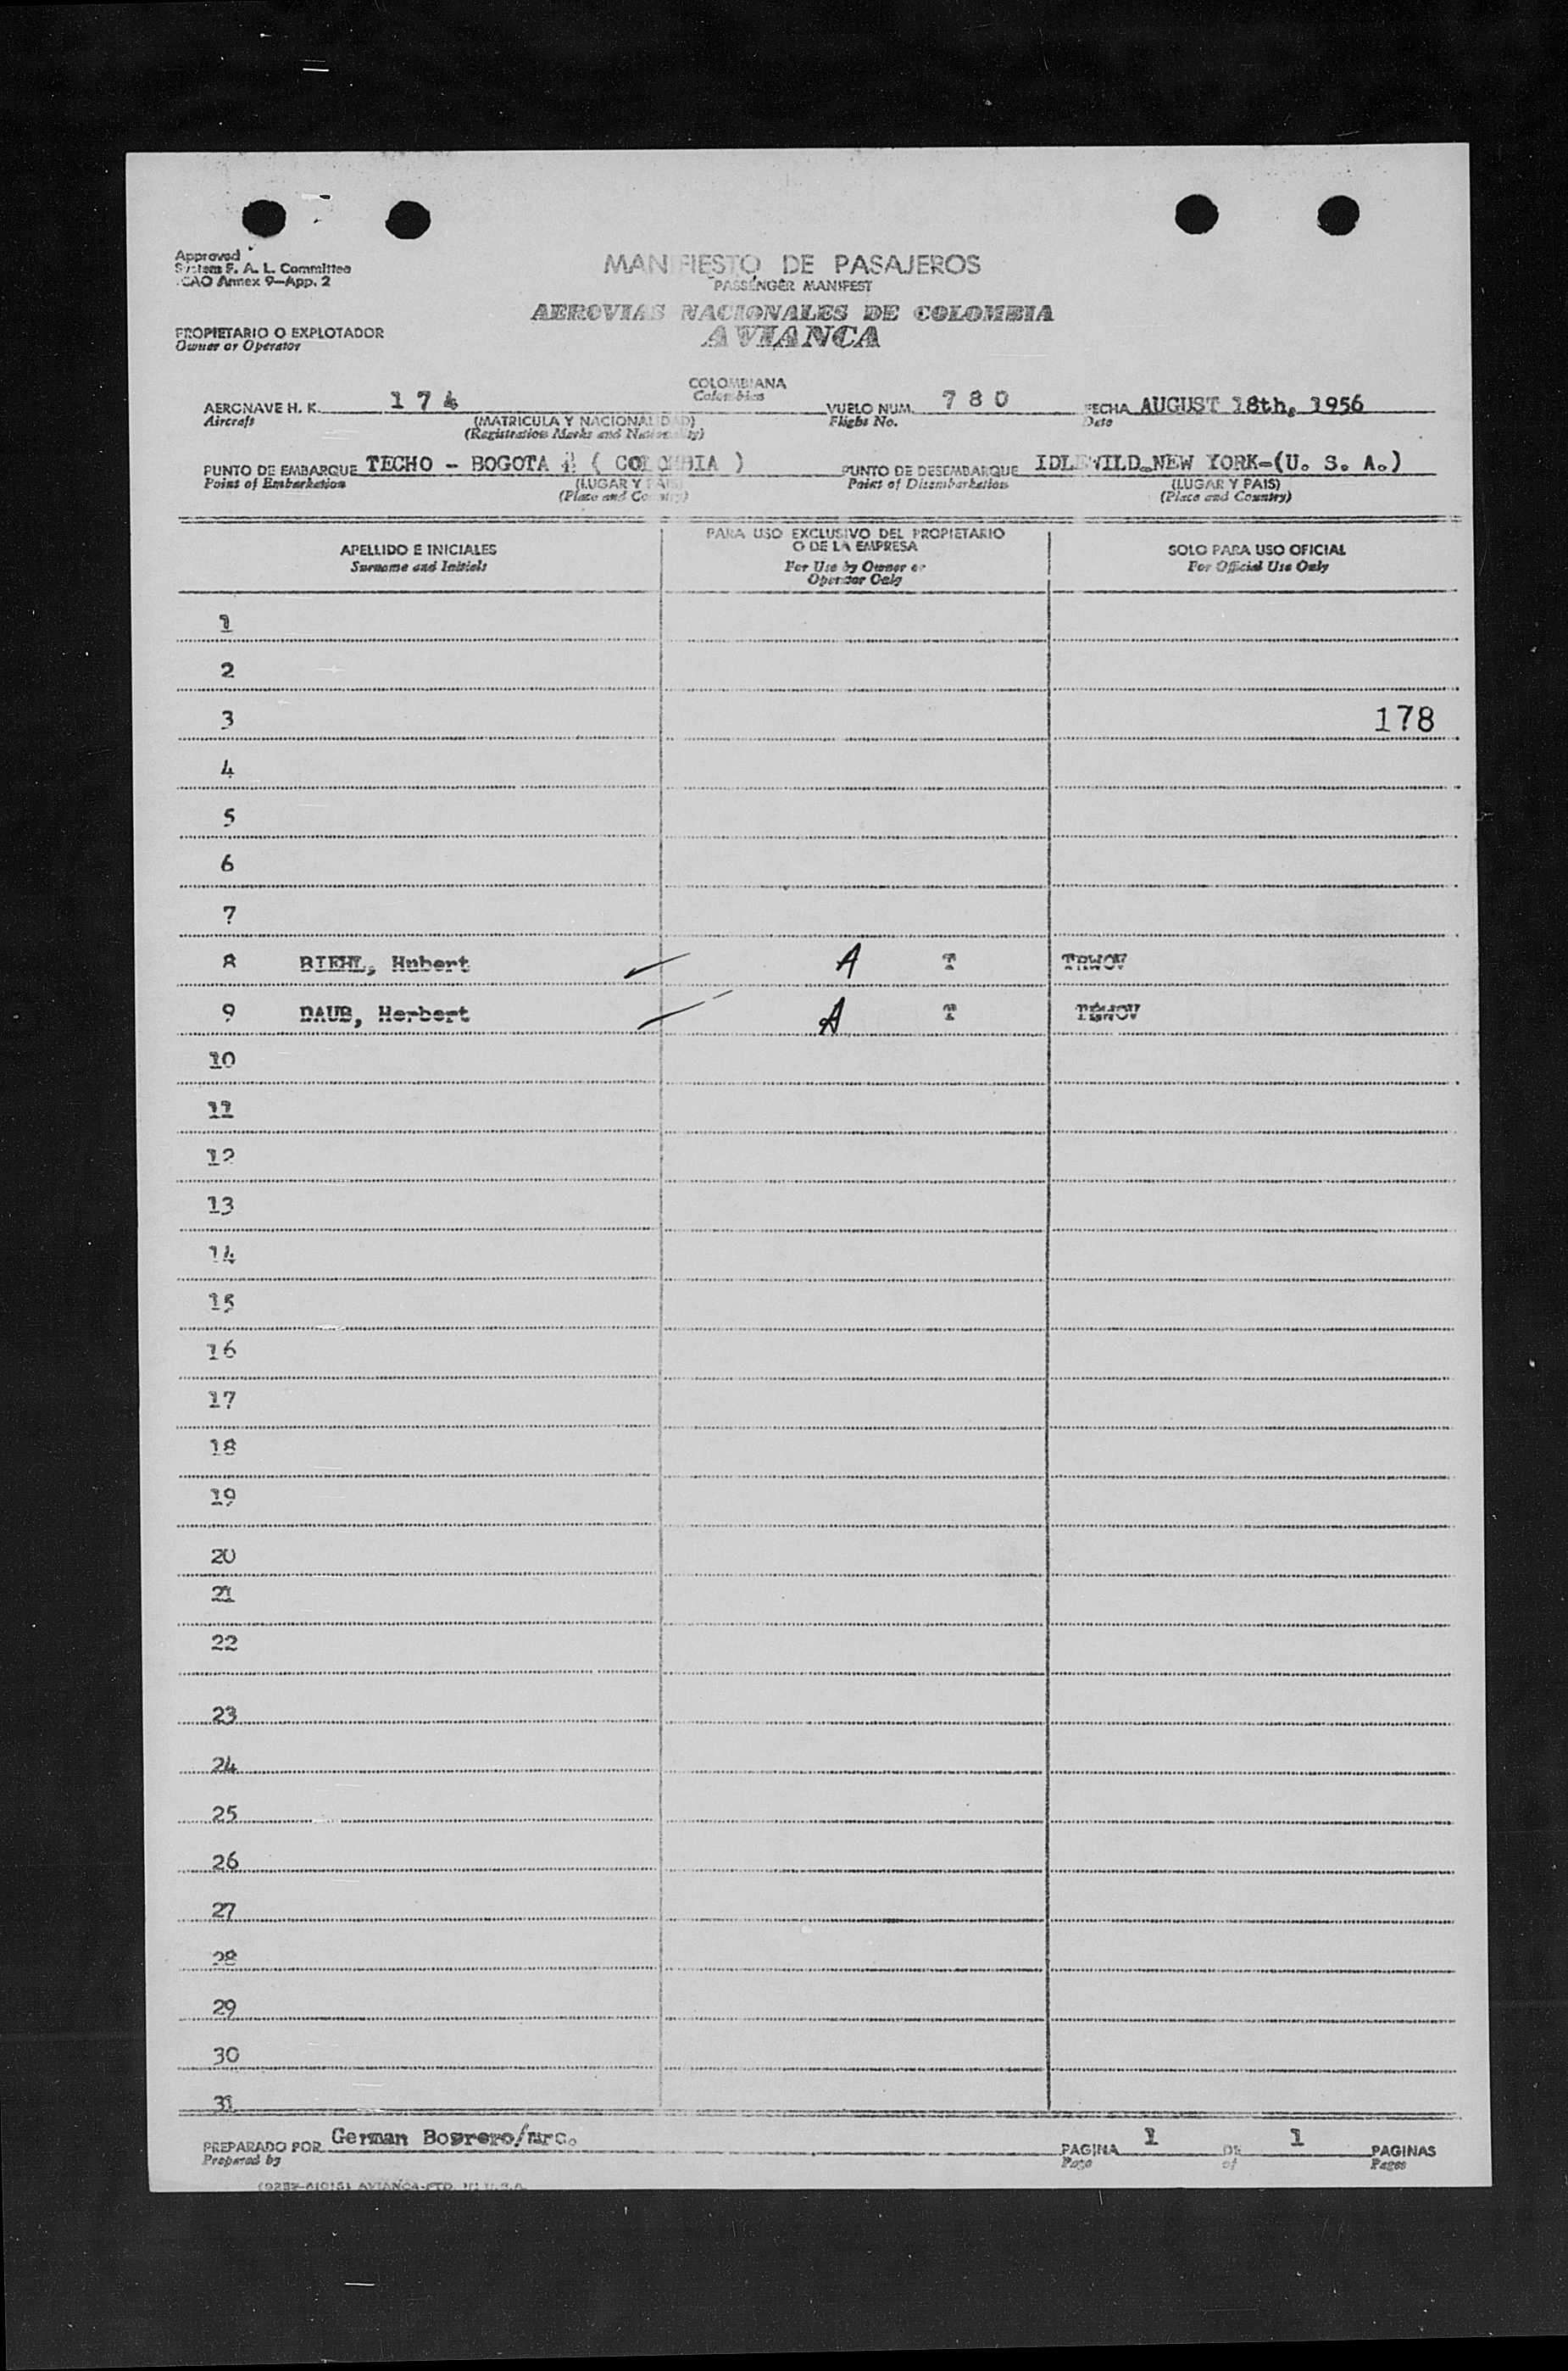 Approved
System F. A. L. Committee
ICAO Annex 9—App. 2
MANIFIESTO DE PASAJEROS
PASSENGER MANIFEST
AEROVIAS NACIONALES DE COLOMBIA
AVIANCA
PROPIETARIO O EXPLOTADOR
Owner or Operator
COLOMBIANA
Colombian
AERONAVE H. K. 1 7 4 VUELO NUM. 7 8 0 FECHA AUGUST 18th, 1956
Aircraft (MATRICULA Y NACIONALIDAD) Flight No. Date
(Registration Marks and Nationality)
PUNTO DE EMBARQUE TECHO - BOGOTA ( COLOMBIA ) PUNTO DE DESEMBARQUE IDLEWILD-NEW YORK-(U. S. A.)
Point of Embarkation (LUGAR Y PAIS) Point of Disembarkation (LUGAR Y PAIS)
(Place and Country) (Place and Country)
APELLIDO E INICIALES PARA USO EXCLUSIVO DEL PROPIETARIO SOLO PARA USO OFICIAL
Surname and Initials O DE LA EMPRESA For Official Use Only
For Use by Owner or
Operator Only
1
2
3 178
4
5
6
7
8 BIEHL, Hubert A T TRWOV
9 DAUB, Herbert A T
10
11
12
13
14
15
16
17
18
19
20
21
22
23
24
25
26
27
28
29
30
31
PREPARADO POR German Borrero/mrc. PAGINA 1 DE 1 PAGINAS
Prepared by Page of Pages